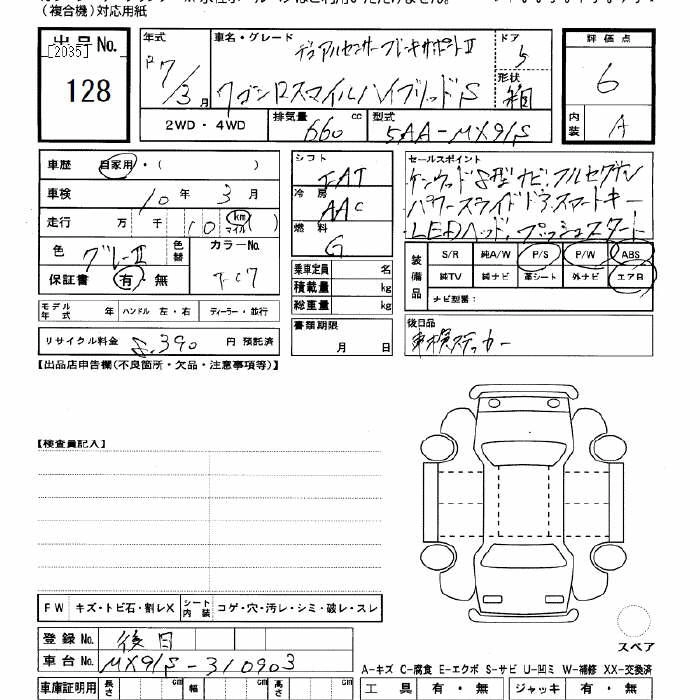 (複合機)対応用紙
出品No.
[2035]
128
年式
R7/3月
車名・グレード
デュアルセンサーブレーキサポートⅡ
ワゴンRスマイルハイブリッドS
ドア
5
形状
箱
評価点
6
内装
A
2WD・4WD
排気量
660 cc
型式
5AA-MX91S
車歴
自家用・( )
車検
10年3月
走行
万 千 10 (km マイル)
色
グレーⅡ
色替
カラーNo.
保証書
有・無
モデル年式 年 ハンドル 左・右 ディーラー・並行
リサイクル料金 8,390 円 預託済
シフト
冷房
AAC
燃料
G
乗車定員 名
積載量 kg
総重量 kg
書類期限
月 日
セールスポイント
ケンウッド8型ナビ、フルセグTV
パワースライドドア、スマートキー
LEDヘッド、プッシュスタート
装備品
S/R 純A/W P/S P/W ABS
純TV 純ナビ 革シート 外ナビ エアB
ナビ型番:
後日品
車検ステッカー
【出品店申告欄(不良箇所・欠品・注意事項等)】
【検査員記入】
FW キズ・トビ石・割レX シート内装 コゲ・穴・汚レ・シミ・破レ・スレ
登録No. 後日
車台No. MX91S-310903
車庫証明用 長さ cm 幅 cm 高さ cm
スペア
A-キズ C-腐食 E-エクボ S-サビ U-凹ミ W-補修 XX-交換済
工具 有・無 ジャッキ 有・無